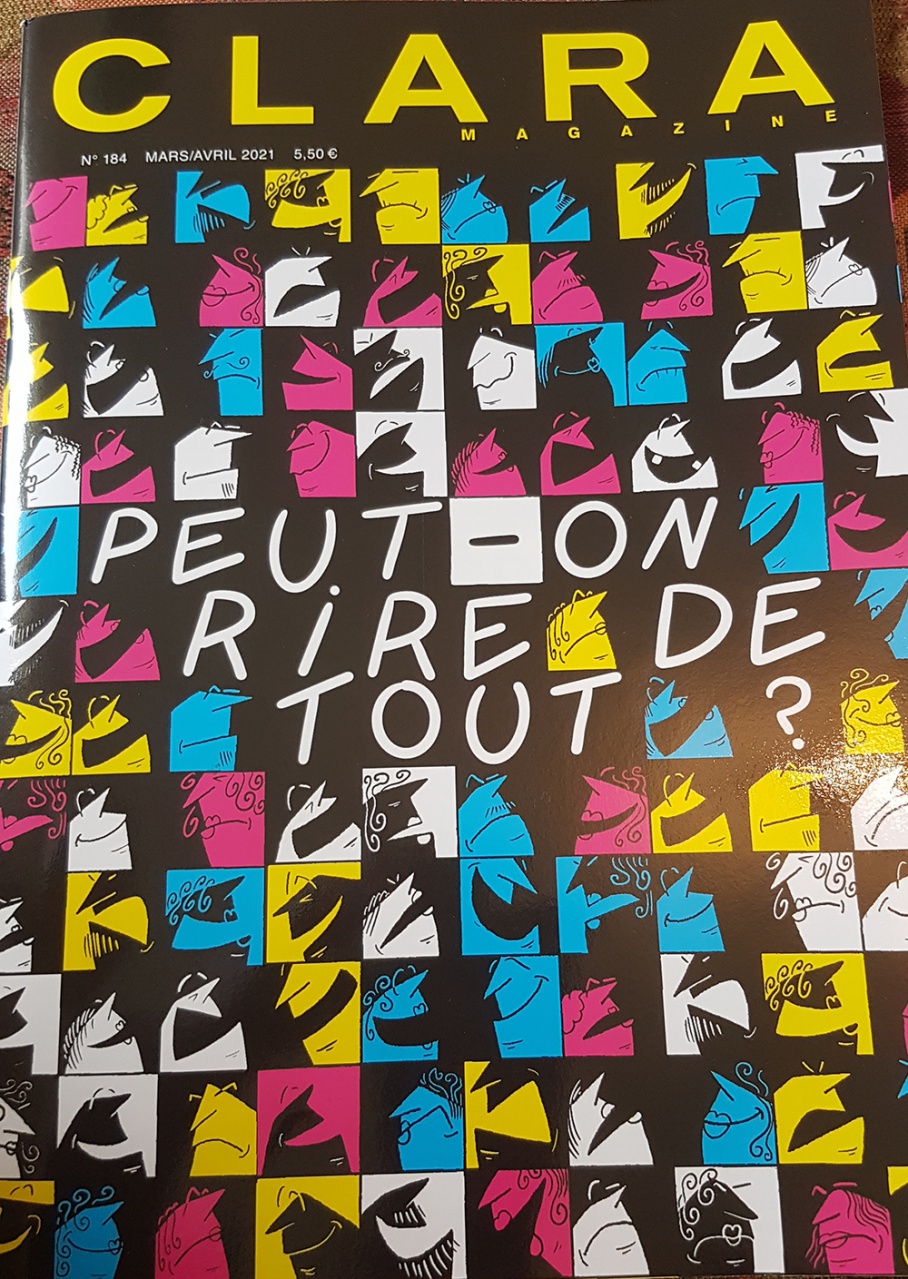 CLARA
MAGAZINE
N° 184 MARS/AVRIL 2021 5,50 €
PEUT-ON
RiRE DE
TOUT ?